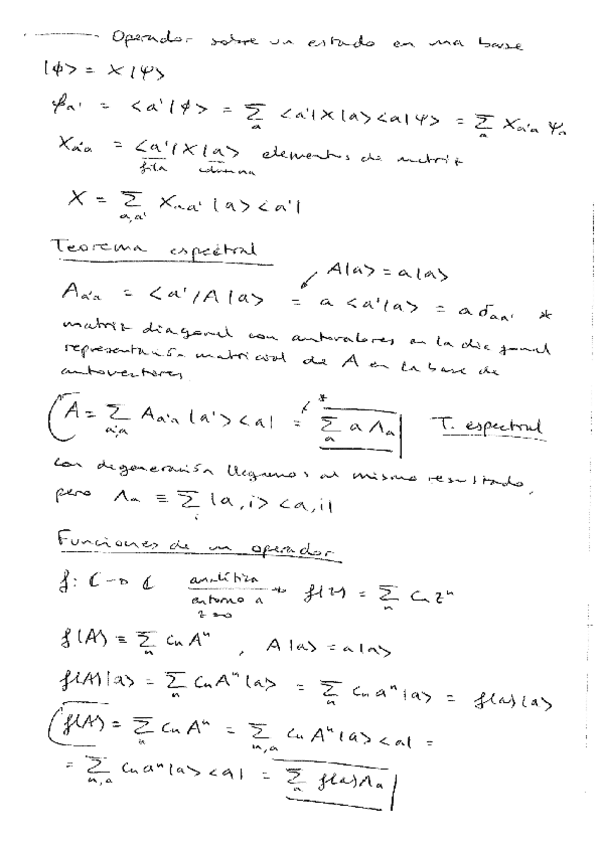 Operador sobre un estado en una base
|φ> = X|Ψ>
φₐ' = <a'|φ> = Σₐ <a'|X|a><a|Ψ> = Σₐ Xₐ'ₐ Ψₐ
Xₐ'ₐ = <a'|X|a> elementos de matriz
fila columna
X = Σ_{a,a'} Xₐₐ' |a><a'|
Teorema espectral
A|a> = a|a>
Aₐ'ₐ = <a'|A|a> = a <a'|a> = a δₐₐ' *
matriz diagonal con autovalores en la diagonal
representación matricial de A en la base de
autovectores
*
A = Σ_{a',a} Aₐ'ₐ |a'><a| = Σₐ a Λₐ T. espectral
Con degeneración llegamos al mismo resultado,
pero Λₐ ≡ Σᵢ |a,i><a,i|
Funciones de un operador
f: C → C analítica entorno a z=0 → f(z) = Σₙ Cₙ zⁿ
f(A) ≡ Σₙ Cₙ Aⁿ , A|a> = a|a>
f(A)|a> = Σₙ Cₙ Aⁿ |a> = Σₙ Cₙ aⁿ |a> = f(a)|a>
f(A) = Σₙ Cₙ Aⁿ = Σ_{n,a} Cₙ Aⁿ |a><a| =
= Σ_{n,a} Cₙ aⁿ |a><a| = Σₐ f(a) Λₐ